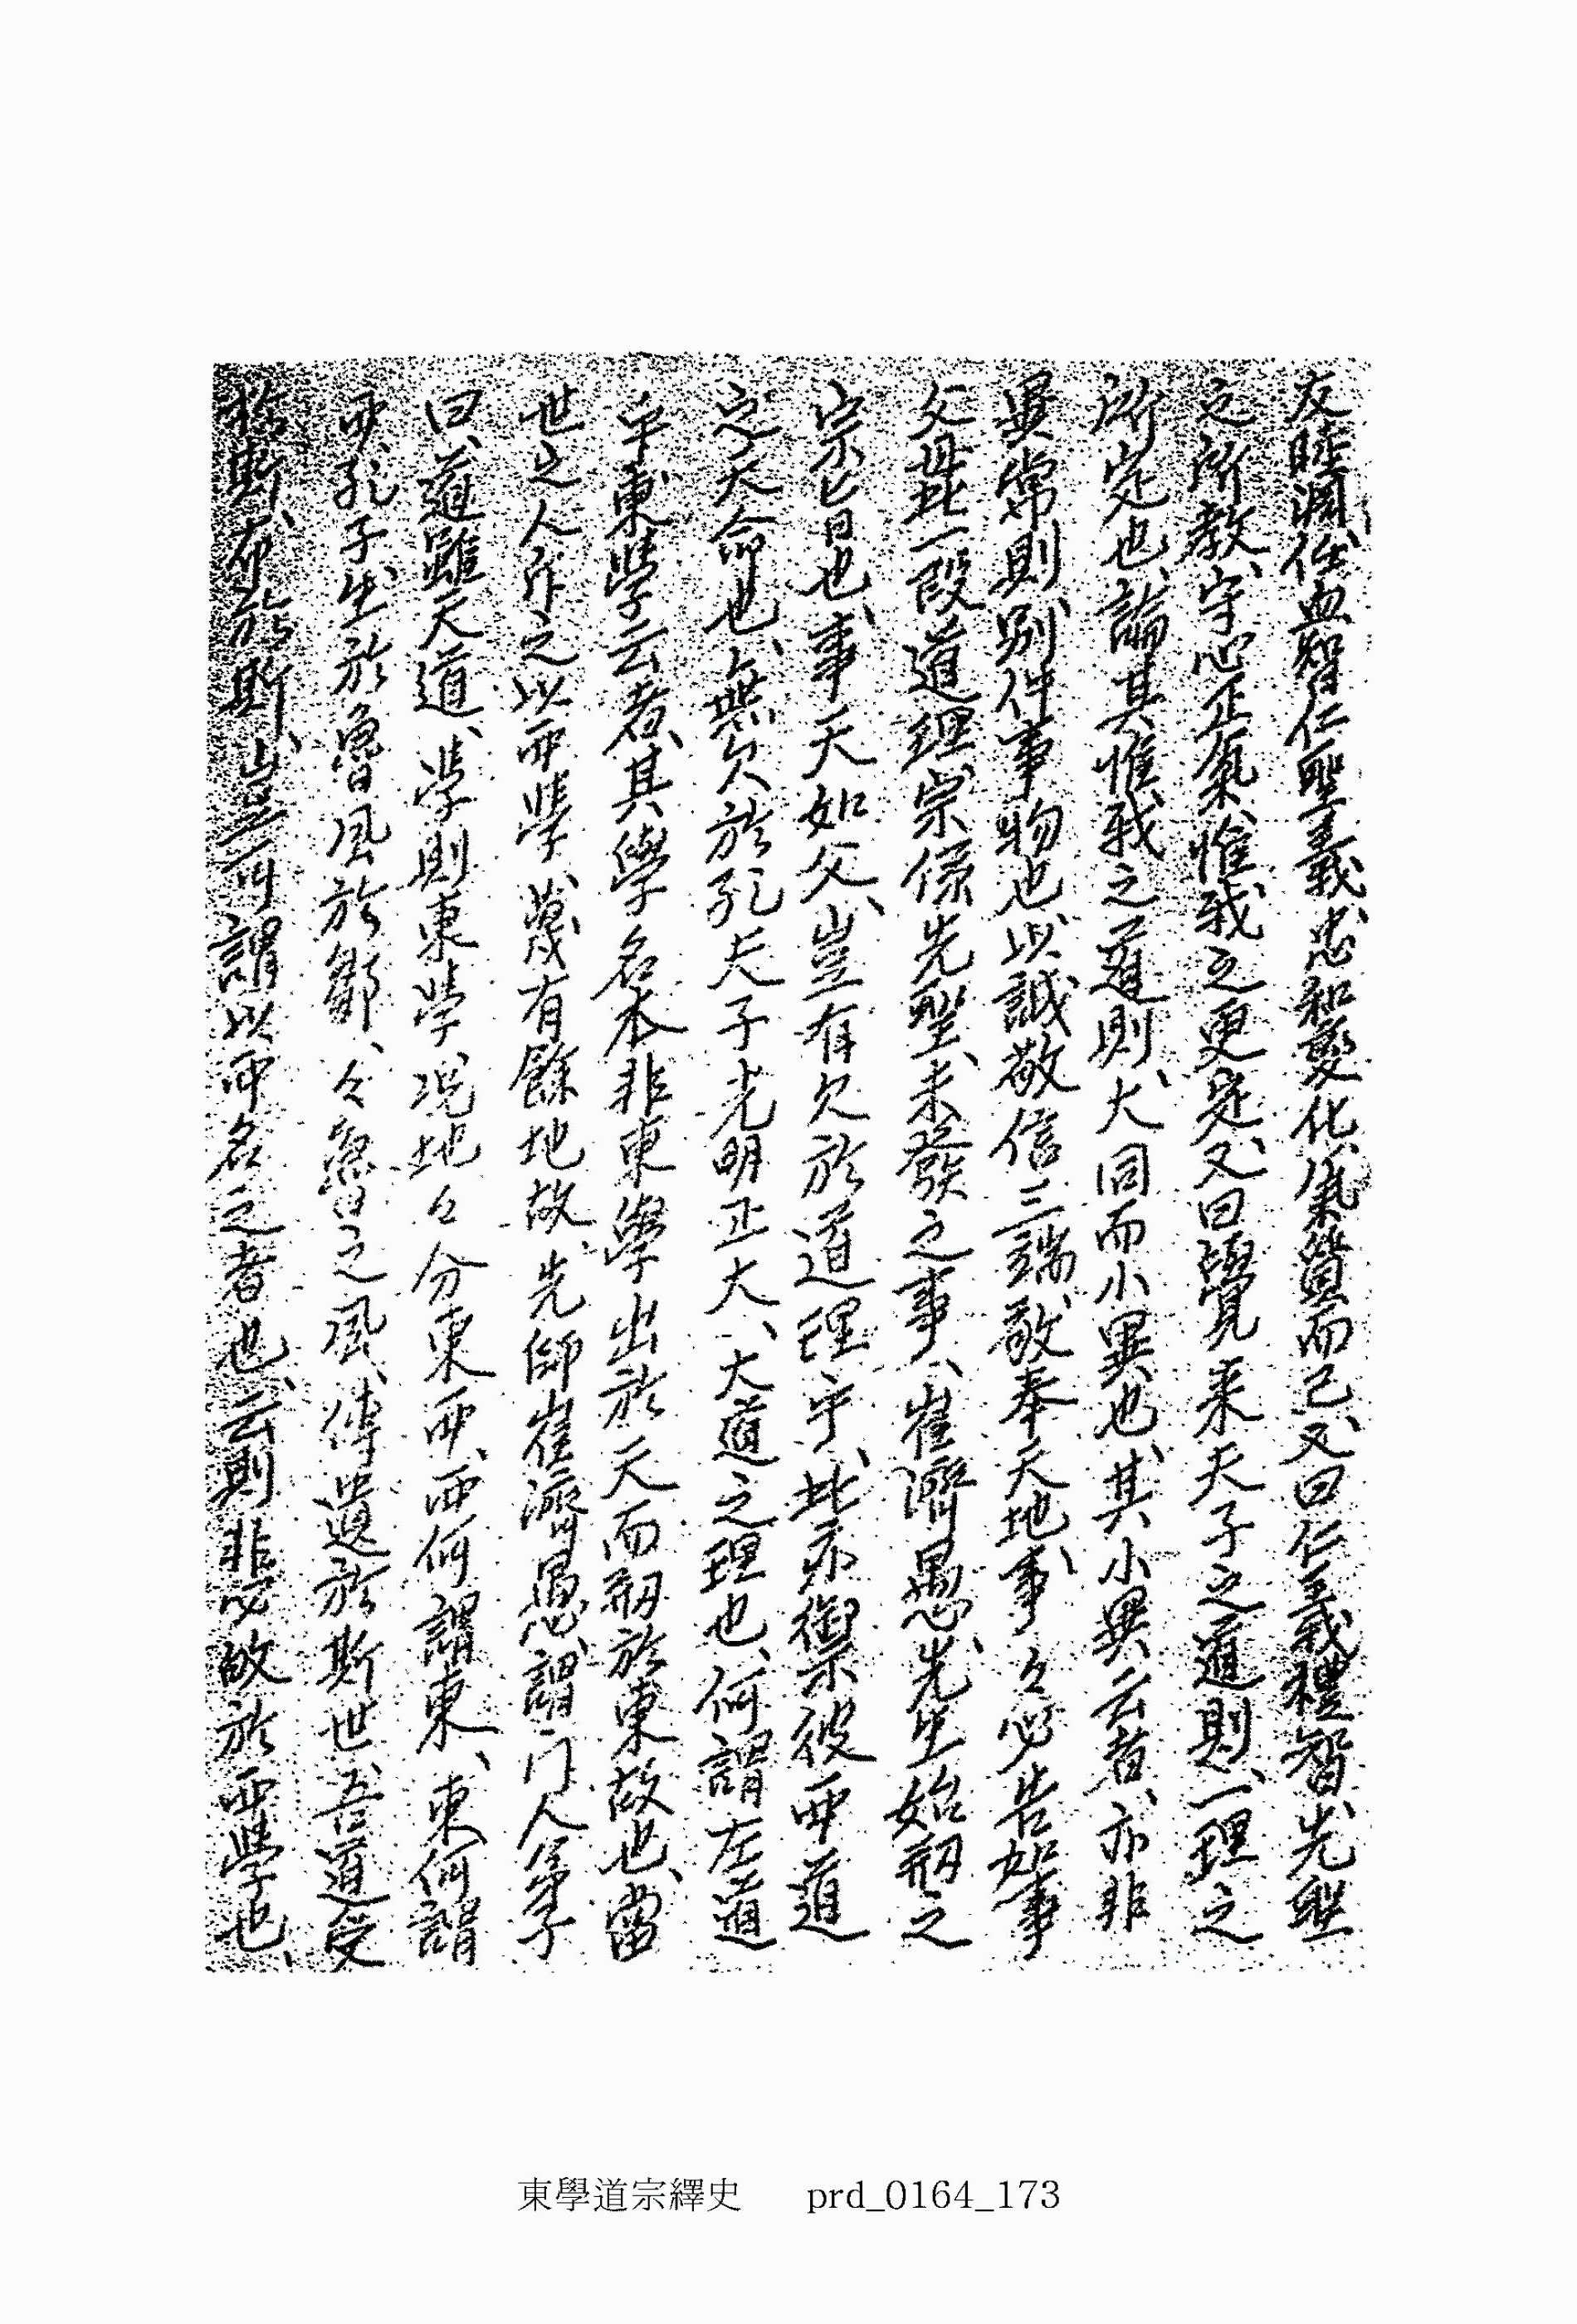 友睦淵任血智仁聖義忠和變化氣質而已又曰仁義禮智先聖
之所敎、守心正氣惟我之更定又曰覺来夫子之道則一理之
所定也、論其惟我之道則、大同而小異也、其小異云者、亦非
異常則別件事物也、以誠敬信三端、敬奉天地事々必告如事
父母、此一段道理、宗係先聖、未發之事、崔濟愚先生始刱之
宗旨也、事天如父、豈有欠於道理乎、此亦禦彼西道
之天命也、無欠於孔夫子光明正大、大道之理也、何謂左道
乎、東學云者、其學名本非東學出於天而刱於東故也、當
世之人斥之以西學、蔑有餘地故、先師崔濟愚、謂門人弟子
曰、道雖天道、學則東學、况地々分東西、西何謂東、東何謂
西、孔子生於魯風於鄒、々魯之風、傳遺於斯世、吾道受
於斯、布於斯、豈可謂以西名之者也、云則非必故於西學也、
東學道宗繹史 prd_0164_173